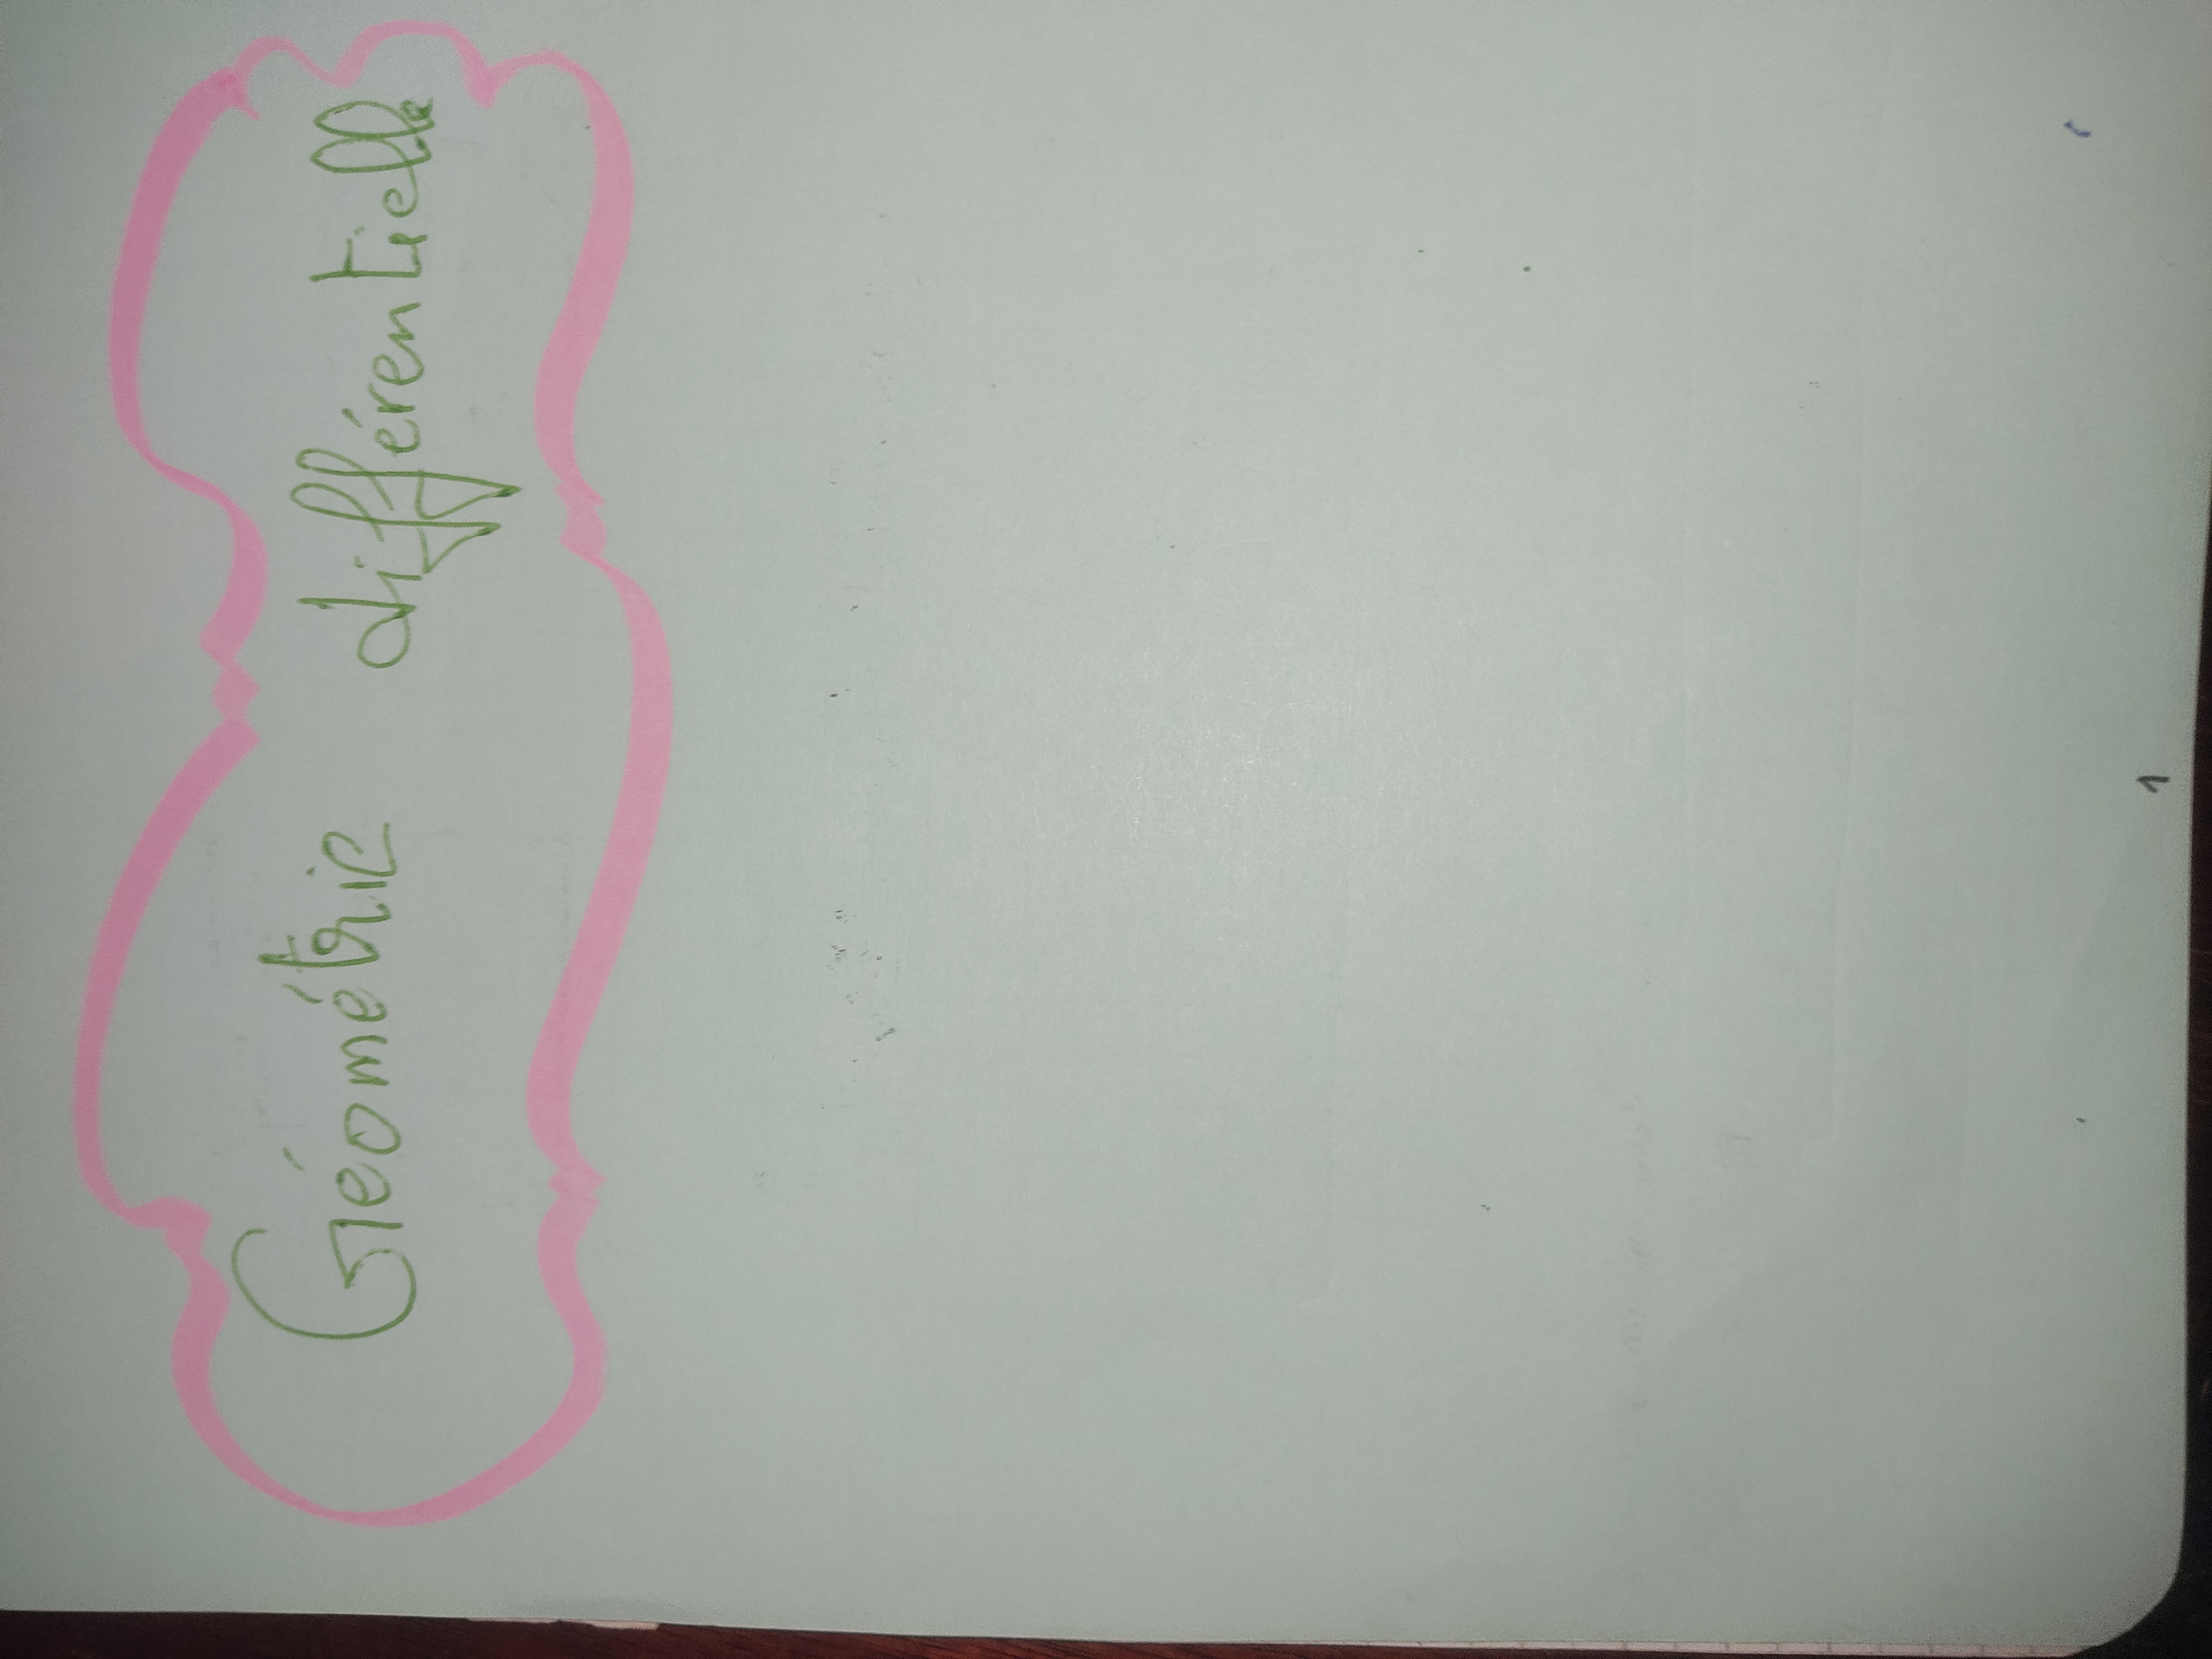 Géométrie différentielle
1